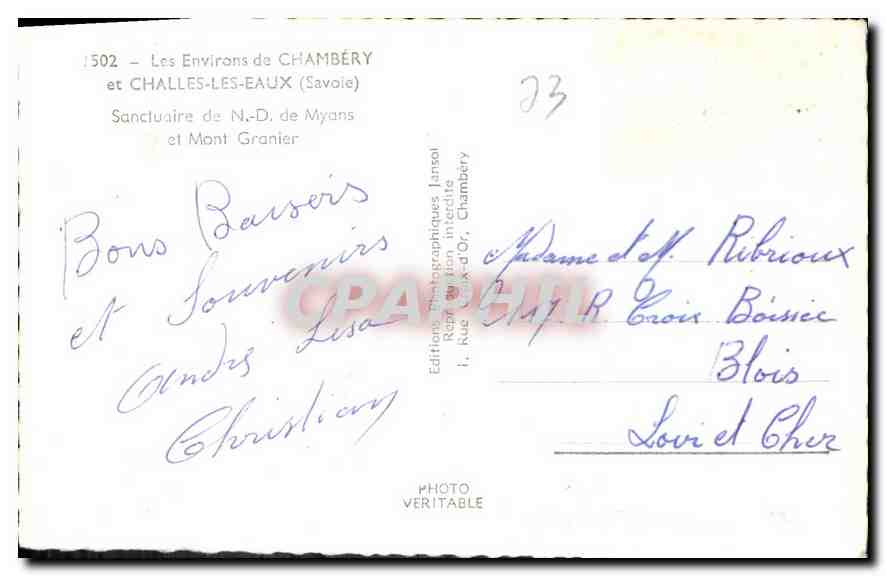 1502 - Les Environs de CHAMBÉRY
et CHALLES-LES-EAUX (Savoie)
Sanctuaire de N.-D. de Myans
et Mont Granier
73
Bons Baisers
et Souvenirs
André Lisa
Christian
Editions Photographiques Jansol
Reproduction interdite
1, Rue Croix-d'Or, Chambéry
Madame et M. Ribrioux
R Croix Boissée
Blois
Loir et Cher
PHOTO
VERITABLE
CPAPHIL